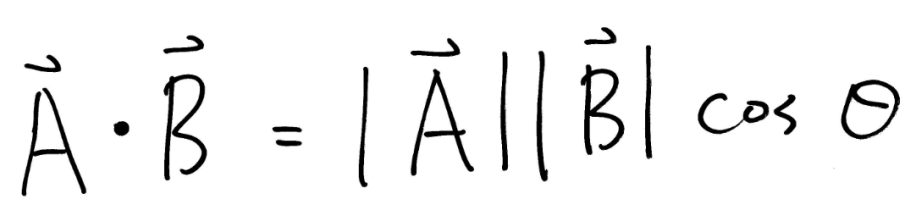 $\vec{A} \cdot \vec{B} = |\vec{A}||\vec{B}| \cos \theta$